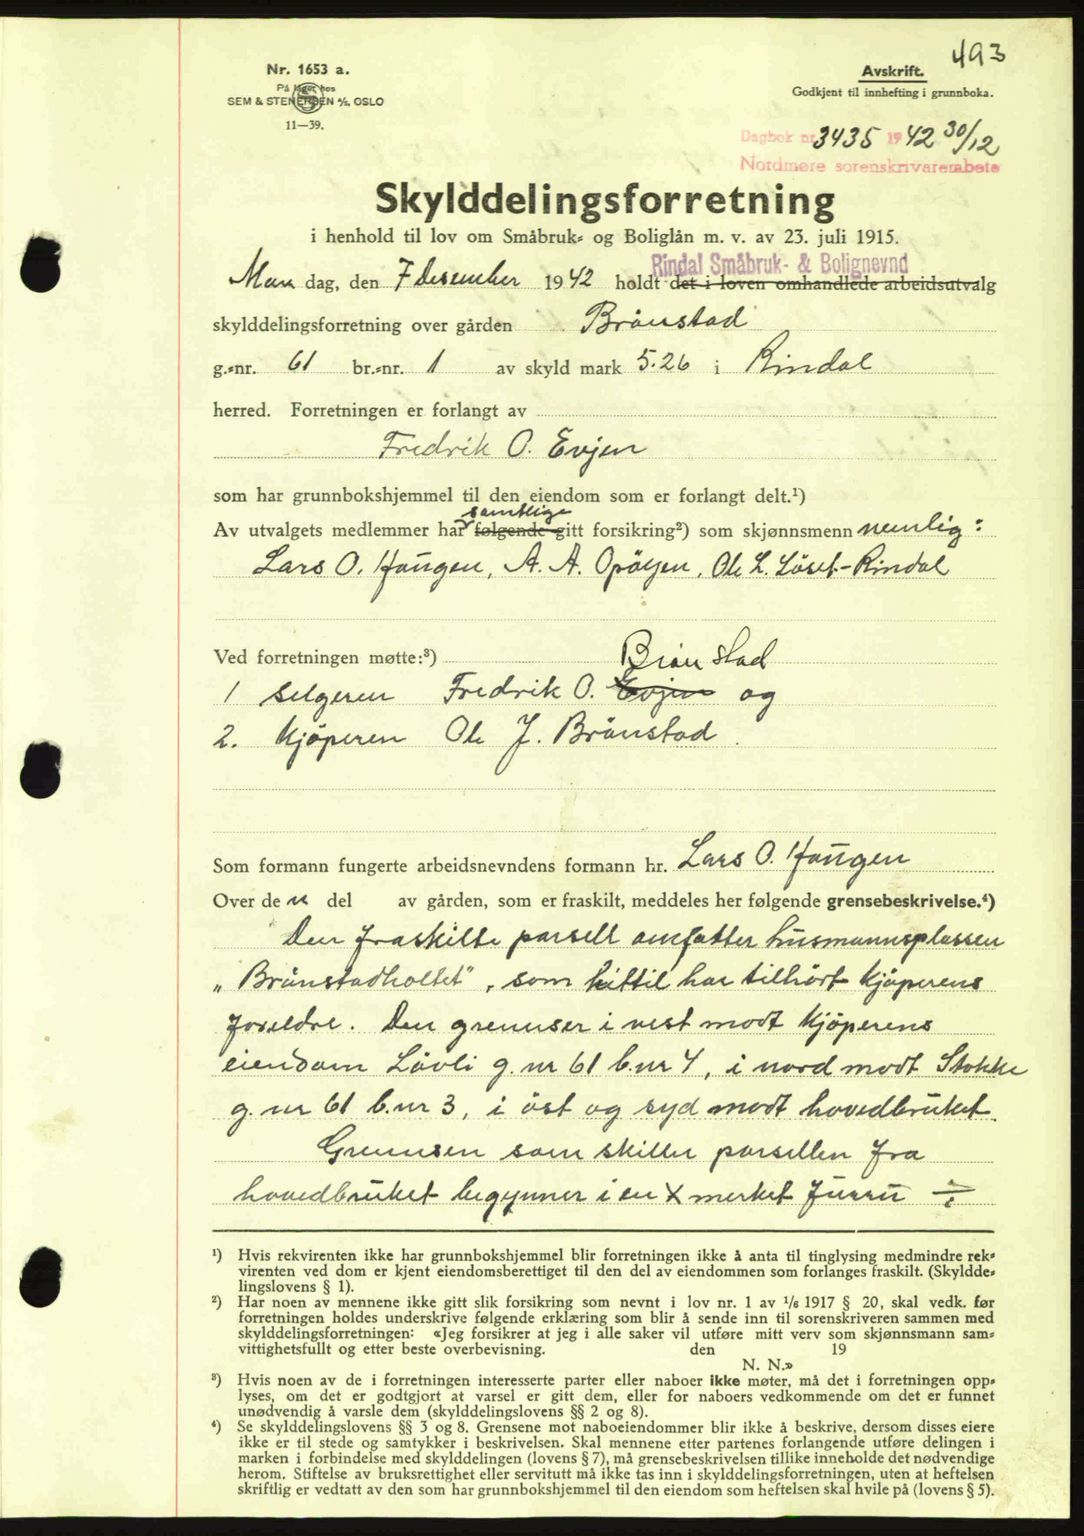 493
Nr. 1653 a.
På lager hos
SEM & STENERSEN A/S, OSLO
11—39.
Avskrift.
Godkjent til innhefting i grunnboka.
Dagbok nr. 3435 1942 30/12
Nordmøre sorenskrivarembete
Skylddelingsforretning
i henhold til lov om Småbruk- og Boliglån m. v. av 23. juli 1915.
Rindal Småbruk- & Bolignevnd
Man dag, den 7 Desember 1942 holdt det i loven omhandlede arbeidsutvalg
skylddelingsforretning over gården Brönstad
g.-nr. 61 br.-nr. 1 av skyld mark 5.26 i Rindal
herred. Forretningen er forlangt av
Fredrik O. Evjen
som har grunnbokshjemmel til den eiendom som er forlangt delt.¹)
samtlige
Av utvalgets medlemmer har følgende gitt forsikring²) som skjønnsmenn nemlig:
Lars O. Haugen, A. A. Opöien, Ole L. Löset-Rindal
Ved forretningen møtte:³)
Brönstad
1 Selgeren Fredrik O. Evjen og
2. Kjöperen Ole J. Brönstad.
Som formann fungerte arbeidsnevndens formann hr. Lars O. Haugen
Over den del av gården, som er fraskilt, meddeles her følgende grensebeskrivelse.⁴)
Den fraskilte parsell omfatter husmannsplassen
„Brönstadholtet", som hittil har tilhört kjöperens
foreldre. Den grenser i vest modt kjöperens
eiendom Lövli g. nr 61 b.nr 4, i nord modt Stokke
g. nr 61 b.nr 3, i öst og syd modt hovedbruket.
Grensen som skiller parsellen fra
hovedbruket begynner i en X merket furru ÷
¹) Hvis rekvirenten ikke har grunnbokshjemmel blir forretningen ikke å anta til tinglysing medmindre rek-
virenten ved dom er kjent eiendomsberettiget til den del av eiendommen som forlanges fraskilt. (Skyldde-
lingslovens § 1).
²) Har noen av mennene ikke gitt slik forsikring som nevnt i lov nr. 1 av 1/6 1917 § 20, skal vedk. før
forretningen holdes underskrive følgende erklæring som blir å sende inn til sorenskriveren sammen med
skylddelingsforretningen: «Jeg forsikrer at jeg i alle saker vil utføre mitt verv som skjønnsmann sam-
vittighetsfullt og etter beste overbevisning. den 19
N. N.»
³) Hvis noen av de i forretningen interesserte parter eller naboer ikke møter, må det i forretningen opp-
lyses, om det er godtgjort at varsel er gitt dem, eller for naboers vedkommende om det er funnet
unødvendig å varsle dem (skylddelingslovens §§ 2 og 8).
⁴) Se skylddelingslovens §§ 3 og 8. Grensene mot naboeiendommer blir ikke å beskrive, dersom disses eiere
ikke er til stede og samtykker i beskrivelsen. Skal mennene etter partenes forlangende utføre delingen i
marken i forbindelse med skylddelingen (lovens § 7), må grensebeskrivelsen tillike inneholde det nødvendige
herom. Stiftelse av bruksrettighet eller servitutt må ikke tas inn i skylddelingsforretningen, uten at heftelsen
skriftlig er vedtatt av den som har grunnbokshjemmel til den eiendom som heftelsen skal hvile på (lovens § 5).